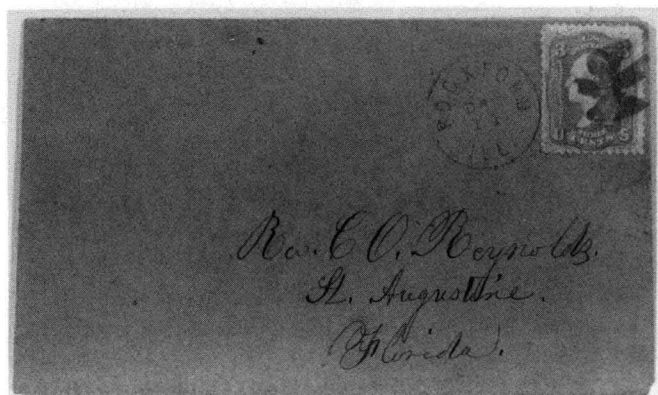 ROCKFORD
ILL.
Rev. C O. Reynolds.
St. Augustine.
Florida.